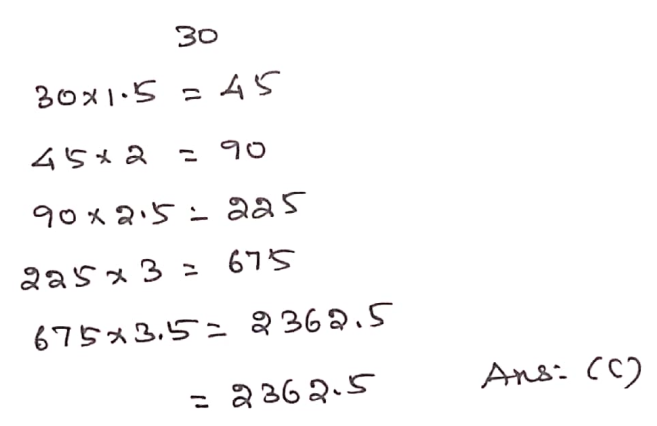 30
30×1.5 = 45
45×2 = 90
90×2.5 = 225
225×3 = 675
675×3.5 = 2362.5
= 2362.5 Ans: (C)